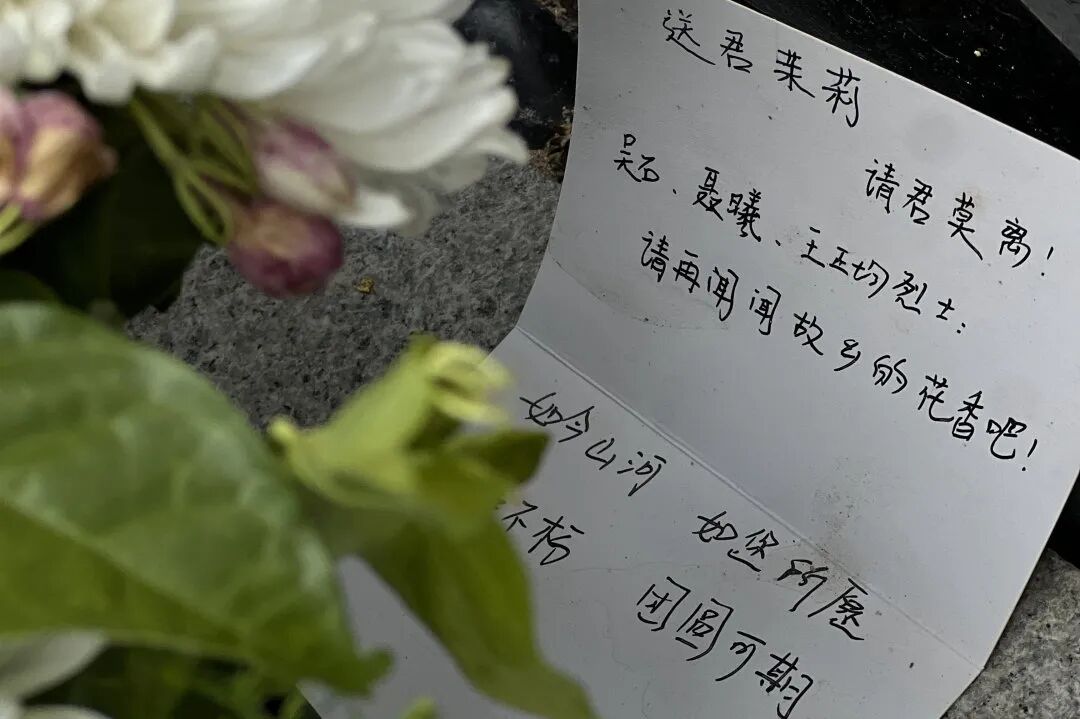 送君茉莉
请君莫离！
吴石、聂曦、王正均烈士：
请再闻闻故乡的花香吧！
如今山河
如您的愿
不朽
团圆可期